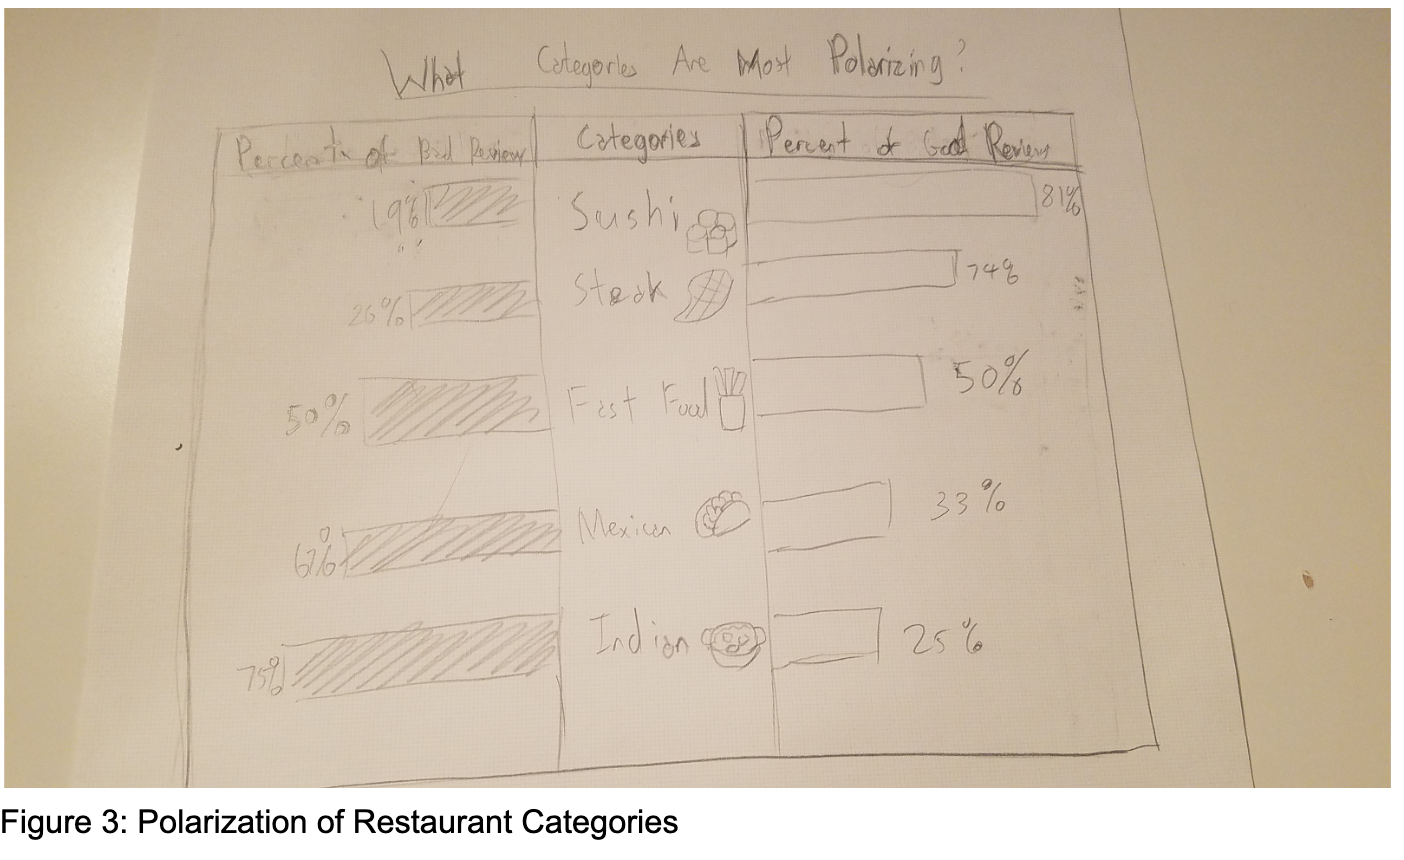 What Categories Are Most Polarizing?
Percent of Bad Review Categories Percent of Good Review
19% Sushi 81%
26% Steak 74%
50% Fast Food 50%
67% Mexican 33%
75% Indian 25%
Figure 3: Polarization of Restaurant Categories